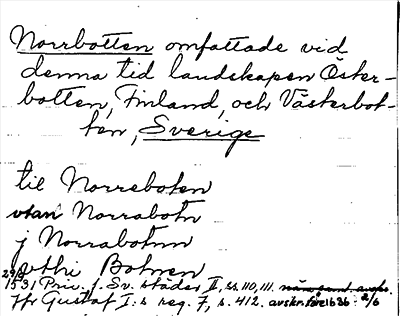 Norrbotten omfattade vid
denna tid landskapen Öster-
botten, Finland, och Västerbot-
ten, Sverige
til Norreboten
utan Norrabotn
j Norrabotnn
uthi Botnen
29/9
1531 Priv. f. Sv. städer II, ss. 110, 111.
Jfr Gustaf I:s reg. 7, s. 412. avskr. före 1636 2/6